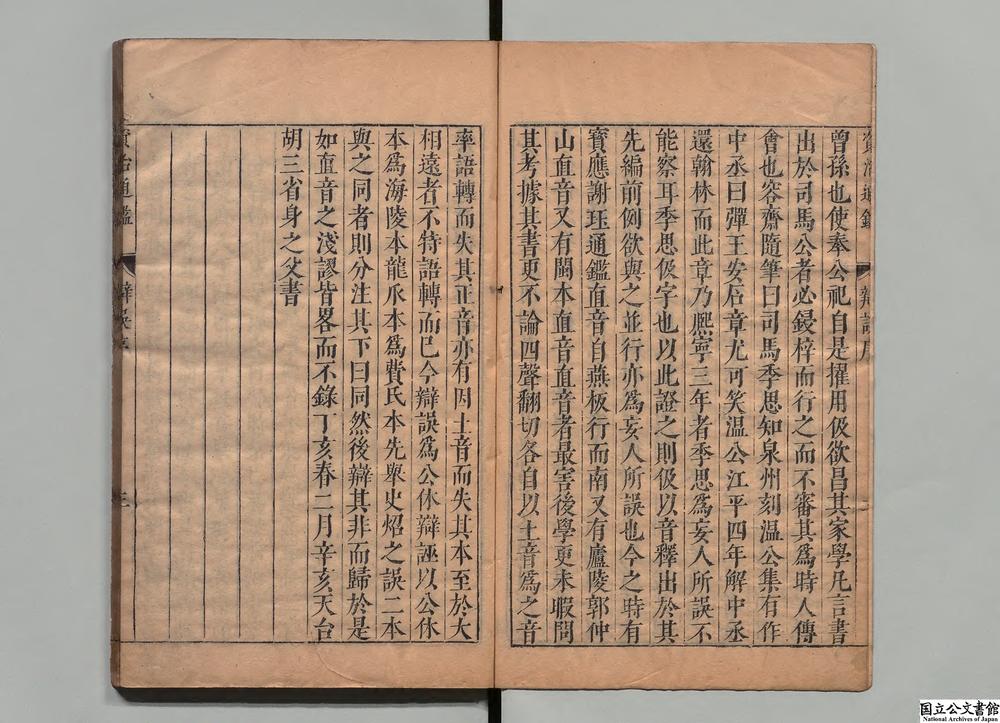 曾孫也使奉公祀自是擢用伋欲昌其家學凡言書
出於司馬公者必鋟梓而行之而不審其為時人傳
會也容齋隨筆曰司馬季思知泉州刻溫公集有作
中丞曰彈王安石章尤可笑溫公江平四年解中丞
還翰林而此章乃熈寧三年者季思為妄人所誤不
能察耳季思伋字也以此證之則伋以音釋出於其
先編前例欲與之並行亦為妄人所誤也今之時有
寳應謝珏通鑑直音自燕板行而南又有廬陵郭仲
山直音又有閩本直音直音者最害後學更未暇問
其考據其書更不論四聲翻切各自以土音為之音
率語轉而失其正音亦有因土音而失其本至於大
相遠者不特語轉而已今辯誤為公休辯誣以公休
本為海陵本龍爪本為費氏本先舉史炤之誤二本
與之同者則分注其下曰同然後辯其非而歸於是
如直音之淺謬皆畧而不錄丁亥春二月辛亥天台
胡三省身之父書
資治通鑑
辯誤序
三
国立公文書館
National Archives of Japan